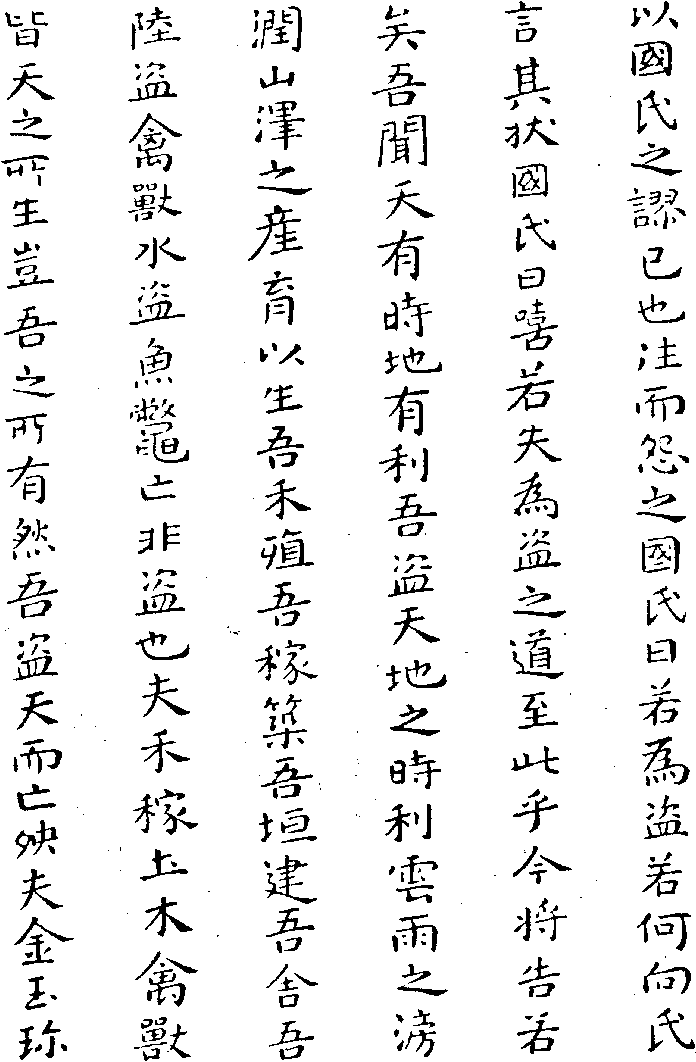 以國氏之謬己也注而怨之國氏曰若為盗若何向氏
言其状國氏曰嘻若失為盗之道至此乎今将告若
矣吾聞天有時地有利吾盗天地之時利雲雨之滂
潤山澤之產育以生吾禾殖吾稼築吾垣建吾舍吾
陸盗禽獸水盗魚鼈亡非盗也夫禾稼土木禽獸
皆天之所生豈吾之所有然吾盗天而亡殃夫金玉珎